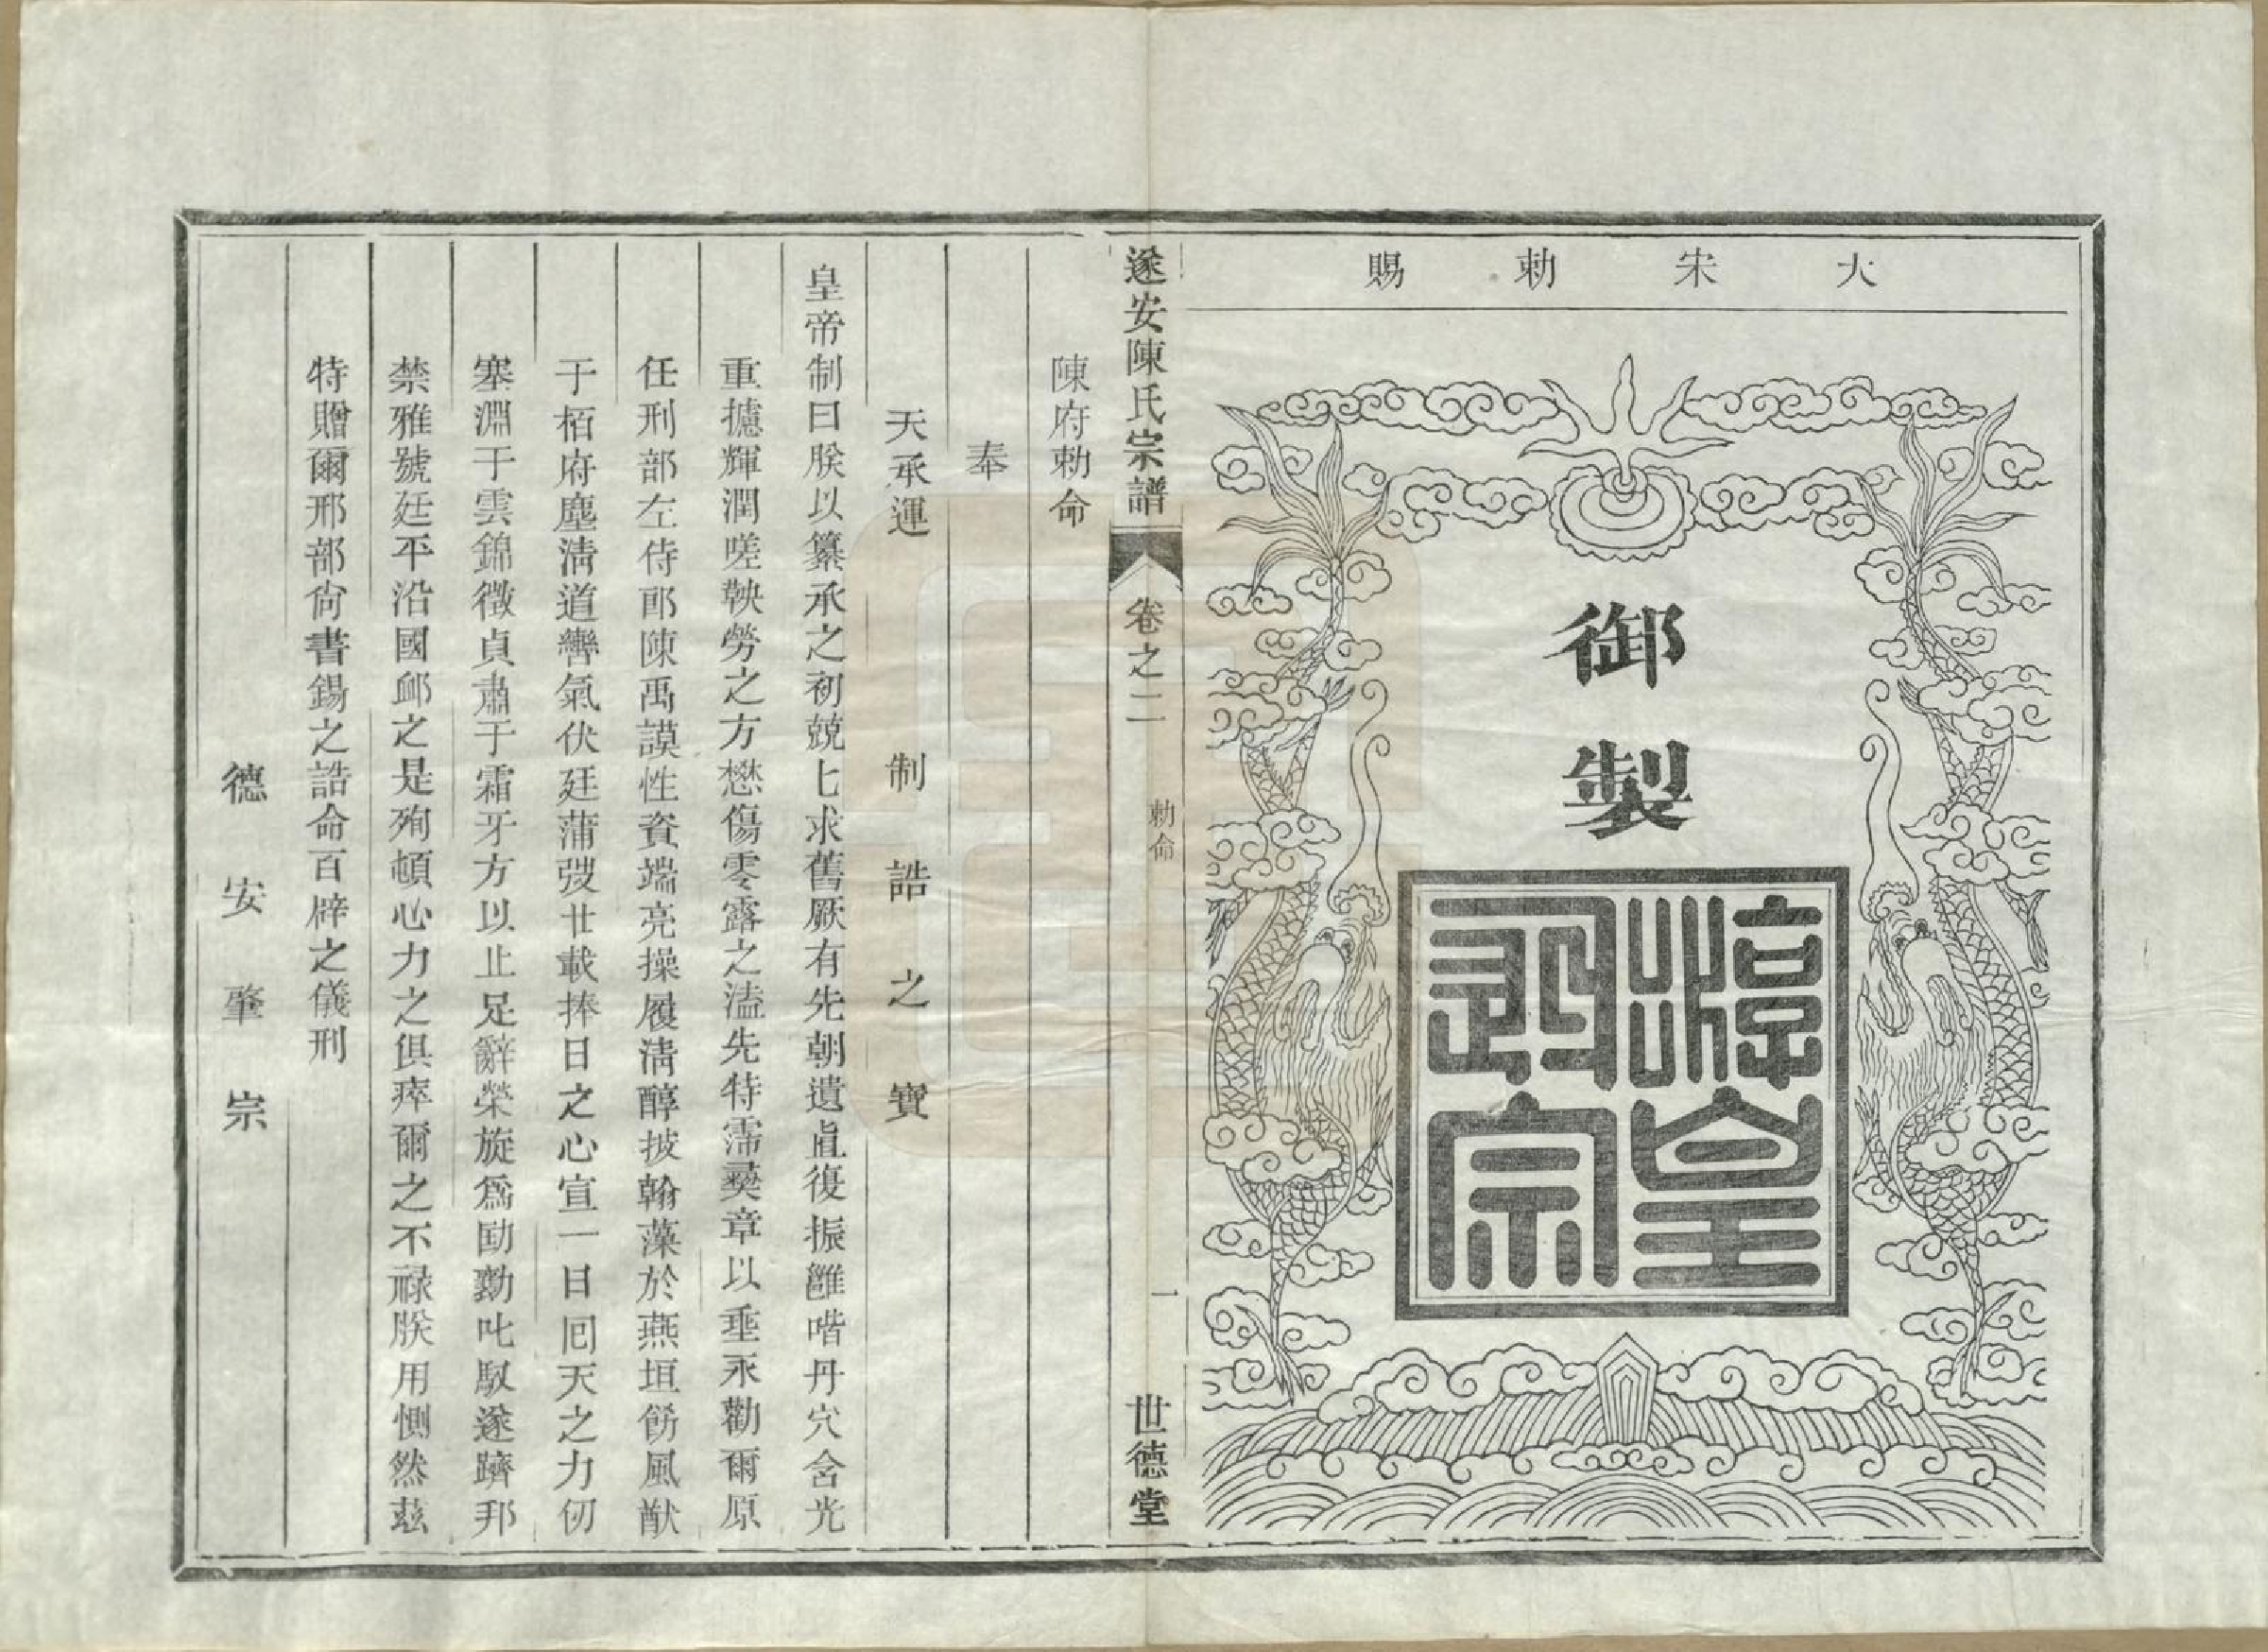 大宋勅賜
御製
遂安陳氏宗譜
卷之二
勅命
一
世德堂
陳府勅命
奉
天承運
制誥之寶
皇帝制曰朕以纂承之初兢七求舊厥有先朝遺直復振雝喈丹穴含光
重攄輝潤嗟鞅勞之方懋傷零露之溘先特霈彛章以垂永勸爾原
任刑部左侍郎陳禹謨性資端亮操履淸醇披翰藻於燕垣餝風猷
于栢府塵淸道轡氣伏廷蒲弢廿載捧日之心宣一日囘天之力仞
塞淵于雲錦徵貞肅于霜牙方以止足辭榮旋爲劻勷叱馭遂躋邦
禁雅號廷平沿國邮之是殉頓心力之俱瘁爾之不祿朕用惻然茲
特贈爾邢部尙書錫之誥命百辟之儀刑
德安肇宗